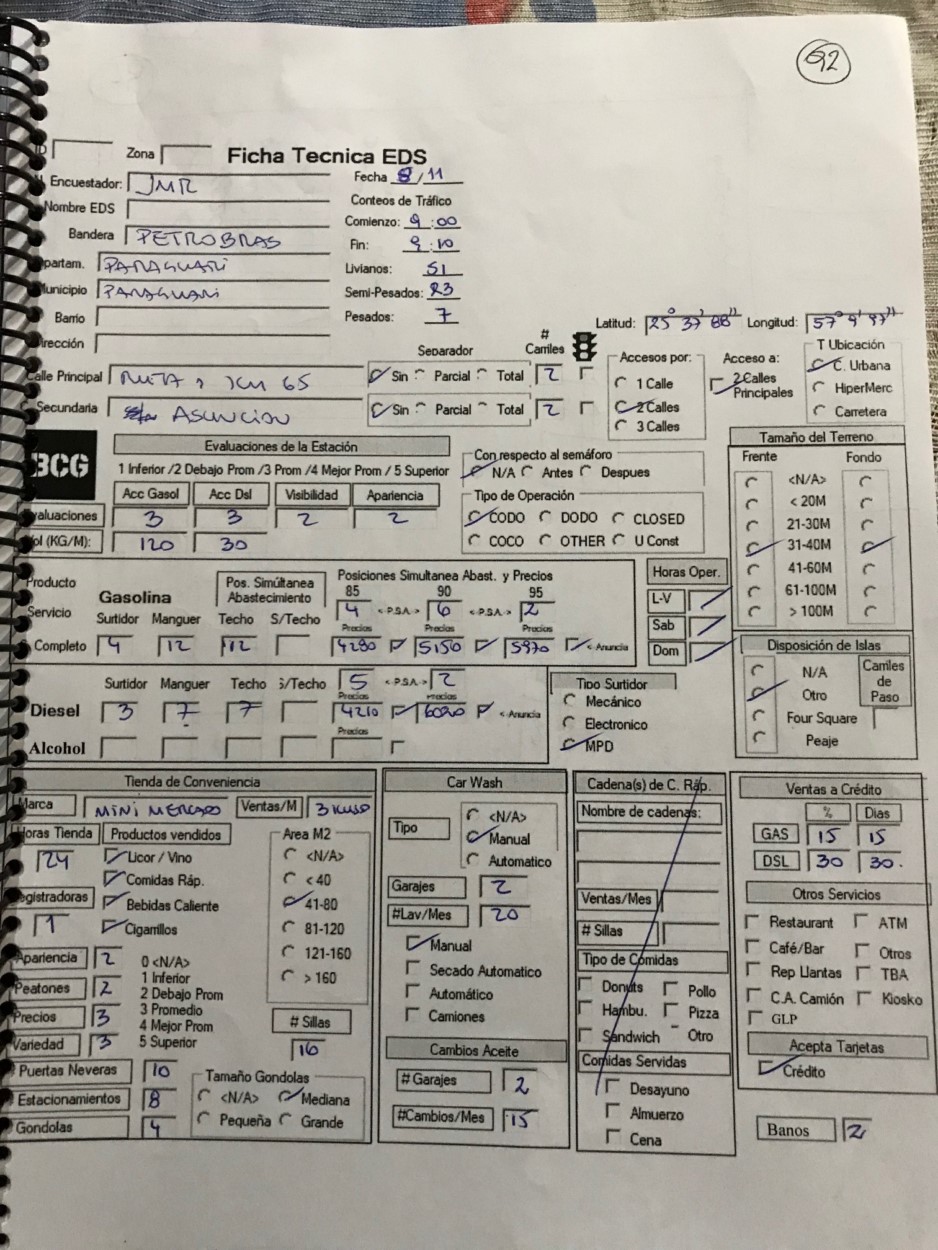 92
ID Zona Ficha Tecnica EDS
Encuestador: JMR Fecha 8/11
Nombre EDS Conteos de Tráfico
Bandera PETROBRAS Comienzo: 9:00
Fin: 9:10
Apartam. PARAGUARI Livianos: 51
Municipio PARAGUARI Semi-Pesados: 23
Barrio Pesados: 7
Latitud: 25° 37' 88" Longitud: 57° 9' 97"
Dirección Separador # Carriles Accesos por: Acceso a: T Ubicación
Calle Principal RUTA 1 KM 65 Sin Parcial Total 2 1 Calle 2 Calles Principales C. Urbana
Secundaria ASUNCION Sin Parcial Total 2 2 Calles HiperMerc
3 Calles Carretera
BCG Evaluaciones de la Estación
1 Inferior /2 Debajo Prom /3 Prom /4 Mejor Prom / 5 Superior
Acc Gasol Acc Dsl Visibilidad Apariencia
Evaluaciones 3 3 2 2
Vol (KG/M): 120 30
Con respecto al semáforo
N/A Antes Despues
Tipo de Operación
CODO DODO CLOSED
COCO OTHER U Const
Tamaño del Terreno
Frente Fondo
<N/A>
< 20M
21-30M
31-40M
41-60M
61-100M
> 100M
Producto Gasolina Pos. Simúltanea Abastecimiento Posiciones Simultanea Abast. y Precios
85 90 95
Servicio 4 <-P.S.A-> 6 <-P.S.A-> 2
Surtidor Manguer Techo S/Techo Precios Precios Precios
Completo 4 12 12 4280 5150 5970 <-Anuncia
Horas Oper.
L-V
Sab
Dom
Surtidor Manguer Techo S/Techo 5 <-P.S.A-> 2
Precios Precios
Diesel 3 7 7 4210 6020 <-Anuncia
Precios
Alcohol
Tipo Surtidor
Mecánico
Electronico
MPD
Disposición de Islas
N/A Carriles de Paso
Otro
Four Square
Peaje
Tienda de Conveniencia
Marca MINI MERCADO Ventas/M
Horas Tienda Productos vendidos Area M2
24 Licor / Vino <N/A>
Comidas Ráp. < 40
Registradoras Bebidas Caliente 41-80
1 Cigarrillos 81-120
121-160
> 160
Apariencia 2 0 <N/A>
1 Inferior
Peatones 2 2 Debajo Prom
Precios 3 3 Promedio
4 Mejor Prom # Sillas
Variedad 3 5 Superior 16
# Puertas Neveras 10 Tamaño Gondolas
Estacionamientos 8 <N/A> Mediana
Gondolas 4 Pequeña Grande
Car Wash
Tipo <N/A>
Manual
Automatico
Garajes 2
#Lav/Mes 20
Manual
Secado Automatico
Automático
Camiones
Cambios Aceite
# Garajes 2
#Cambios/Mes 15
Cadena(s) de C. Ráp.
Nombre de cadenas:
Ventas/Mes
# Sillas
Tipo de Comidas
Donuts Pollo
Hambu. Pizza
Sandwich Otro
Comidas Servidas
Desayuno
Almuerzo
Cena
Ventas a Crédito
% Dias
GAS 15 15
DSL 30 30.
Otros Servicios
Restaurant ATM
Café/Bar Otros
Rep Llantas TBA
C.A. Camión Kiosko
GLP
Acepta Tarjetas
Crédito
Banos 2